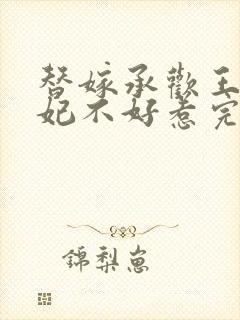 替嫁承歡王
妃不好惹完
錦梨崽